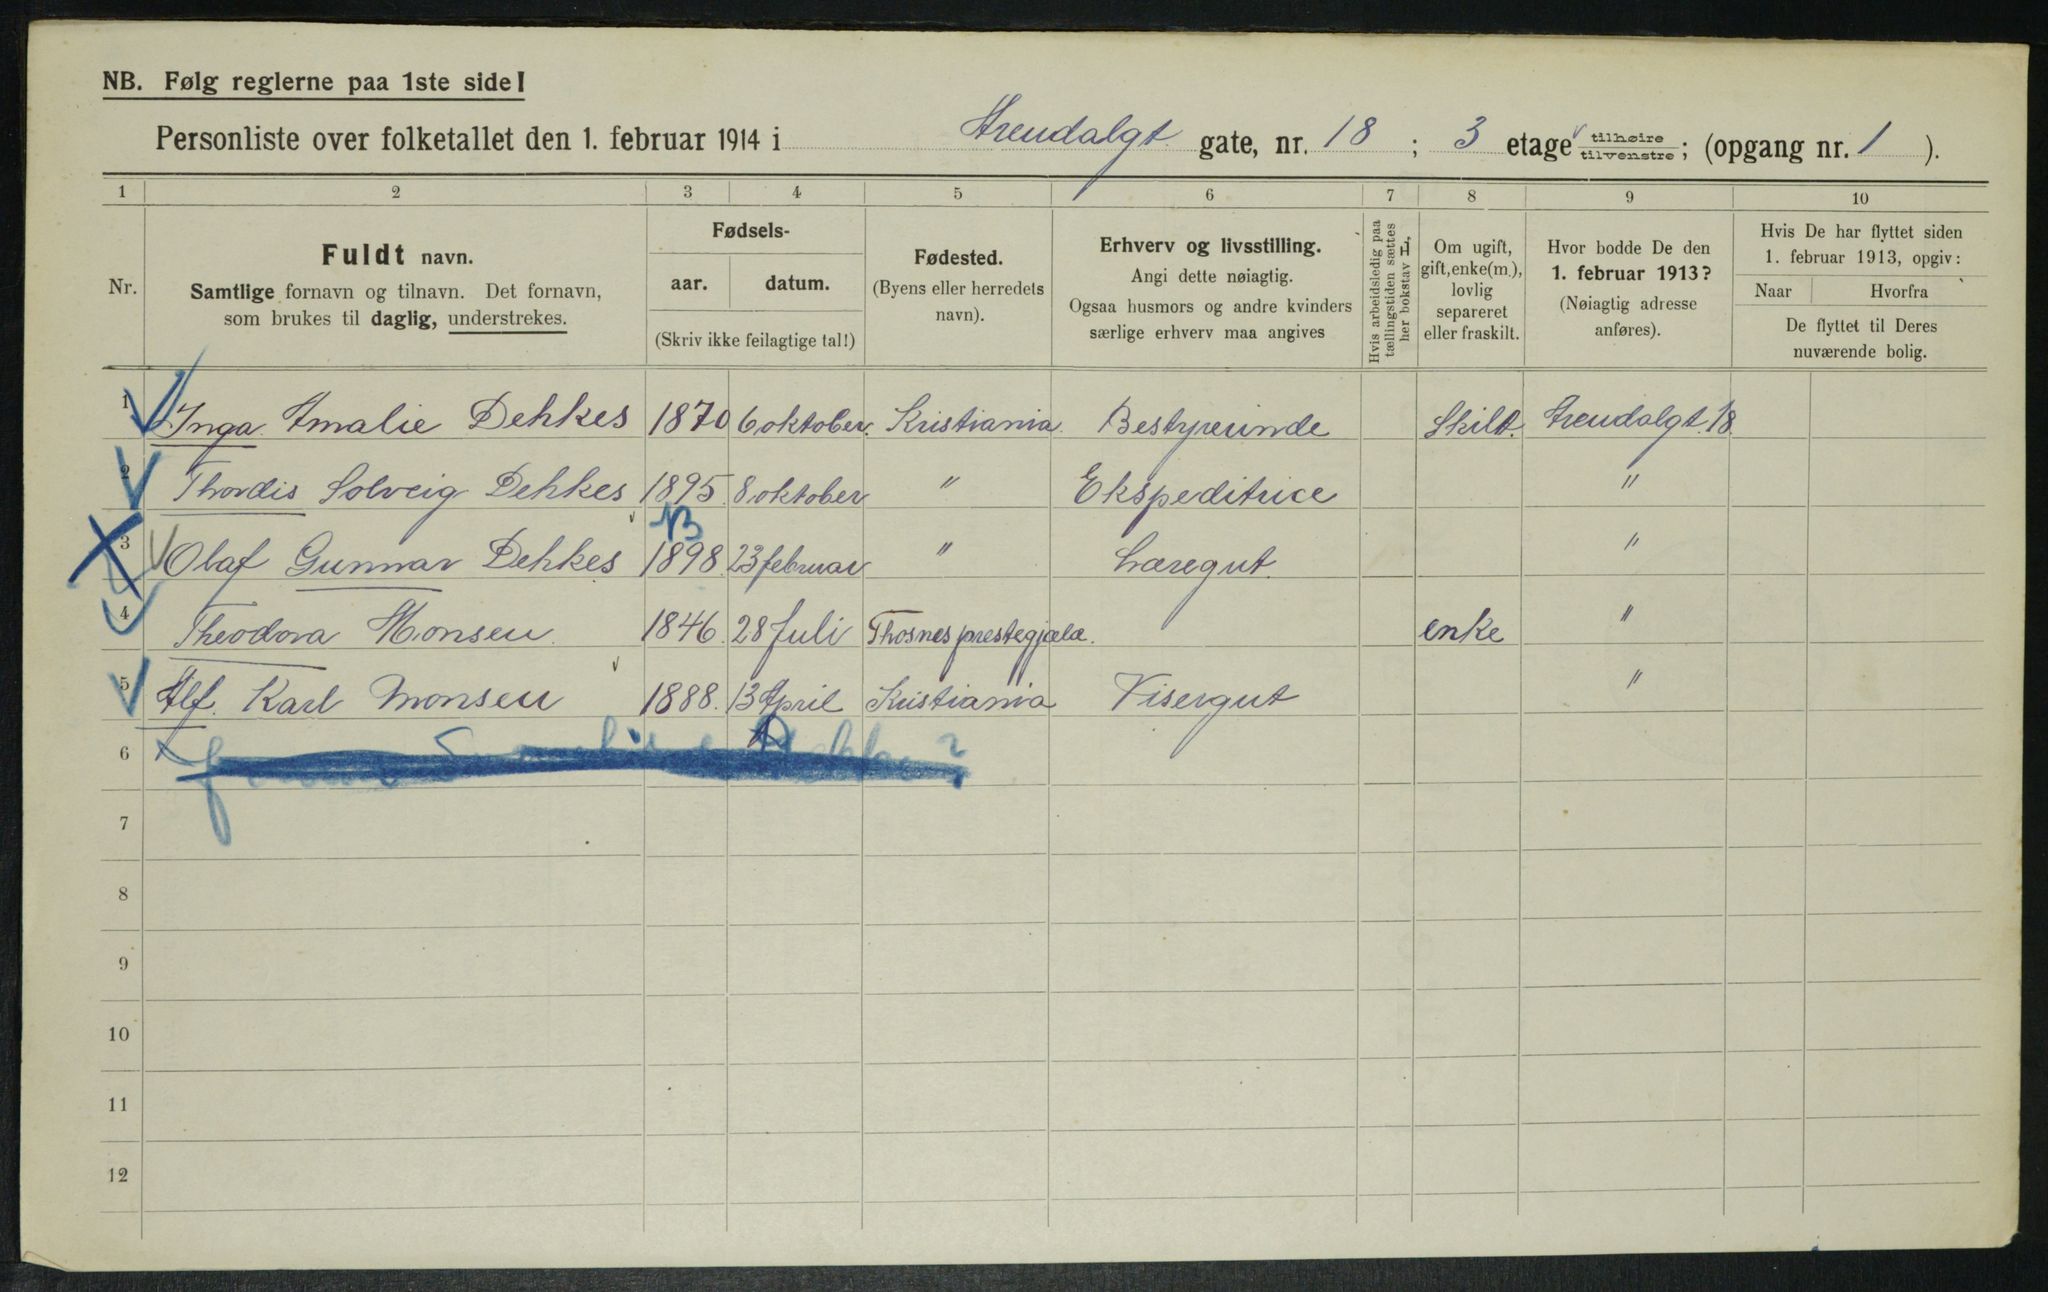 NB. Følg reglerne paa 1ste side!
Personliste over folketallet den 1. februar 1914 i Arendalgt. gate, nr. 18 ; 3 etage tilhøire tilvenstre ; (opgang nr. 1 ).
1 2 3 4 5 6 7 8 9 10
Nr.
Fuldt navn.
Samtlige fornavn og tilnavn. Det fornavn,
som brukes til daglig, understrekes.
Fødsels-
aar. datum.
(Skriv ikke feilagtige tal!)
Fødested.
(Byens eller herredets
navn).
Erhverv og livsstilling.
Angi dette nøiagtig.
Ogsaa husmors og andre kvinders
særlige erhverv maa angives
Hvis arbeidsledig paa
tællingstiden sættes
her bokstav H,
Om ugift,
gift, enke(m.),
lovlig
separeret
eller fraskilt.
Hvor bodde De den
1. februar 1913?
(Nøiagtig adresse
anføres).
Hvis De har flyttet siden
1. februar 1913, opgiv:
Naar Hvorfra
De flyttet til Deres
nuværende bolig.
1 Inga Amalie Dehkes 1870 6 oktober. Kristiania. Bestyrerinde Skilt. Arendalgt. 18.
2 Thordis Solveig Dehkes 1895 8 oktober " Ekspeditrice "
3 Olaf Gunnar Dehkes 1898 23 februar " Læregut. "
4 Theodora Monsen 1846. 28 Juli Thosnes prestegjæld. enke "
5 Alf. Karl Monsen 1888. 13 April Kristiania Visergut "
6
7
8
9
10
11
12